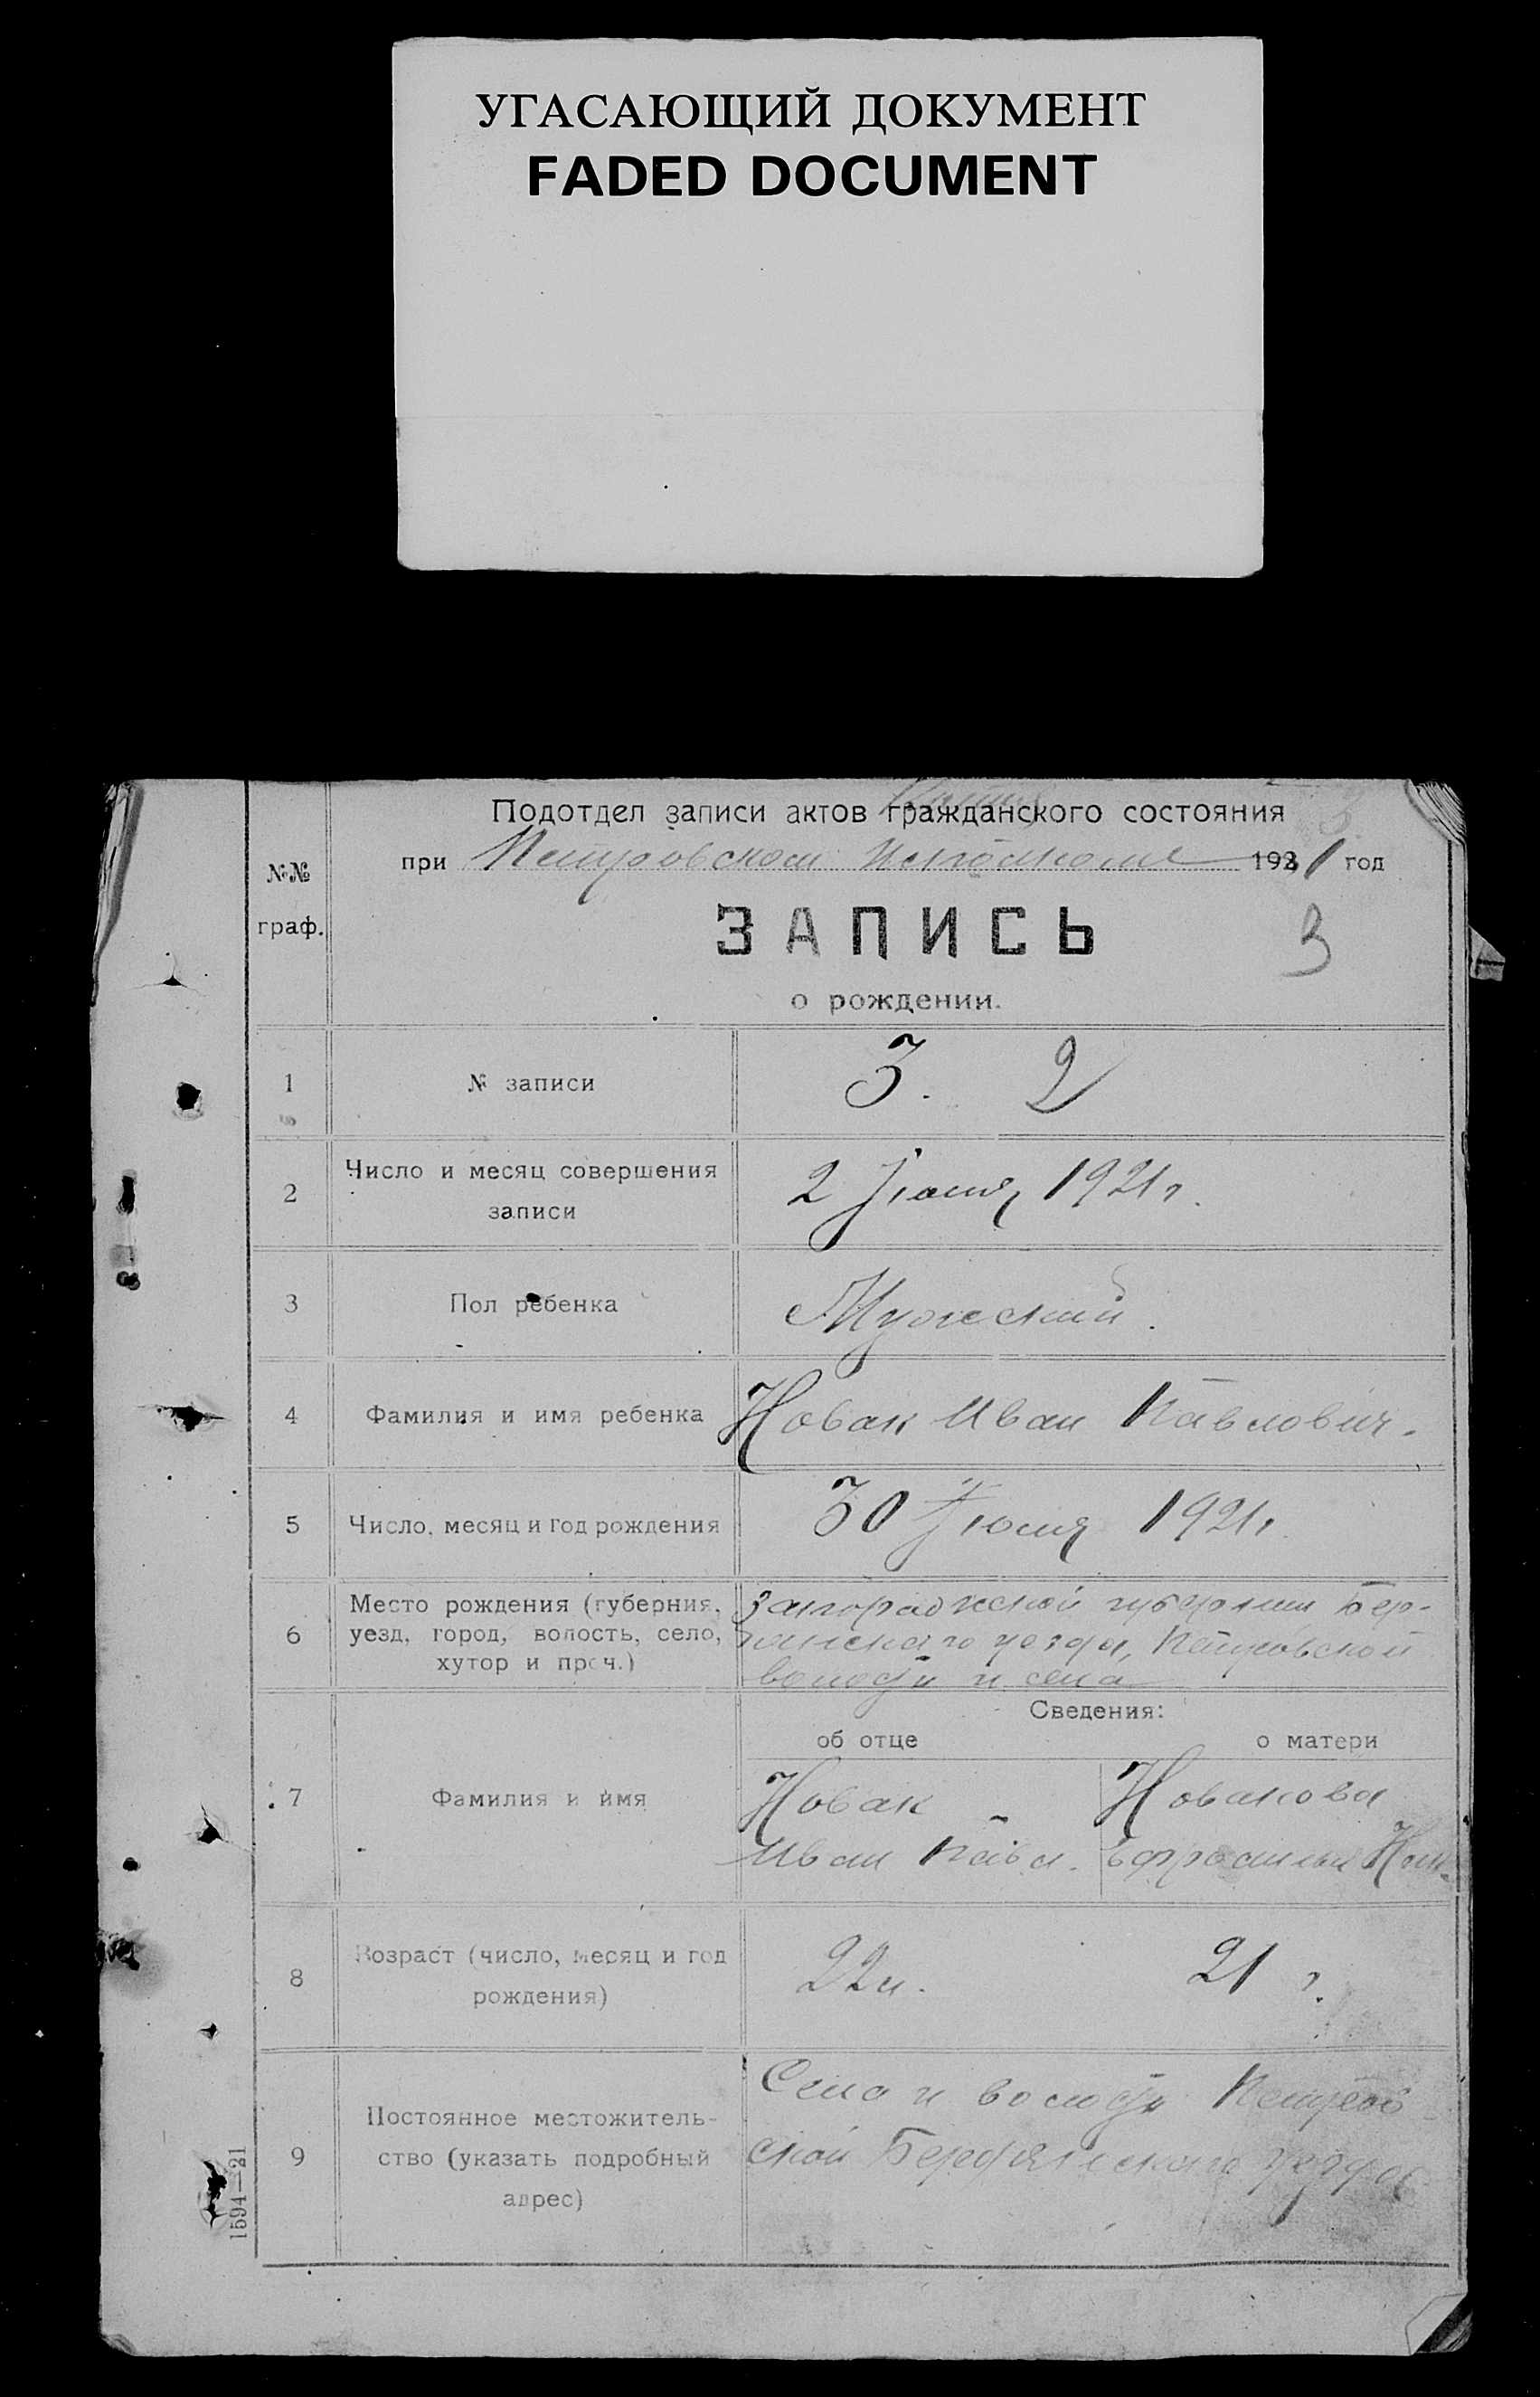 УГАСАЮЩИЙ ДОКУМЕНТ
FADED DOCUMENT
Подотдел записи актов гражданского состояния
при Петровском Исполкоме 1921 год
№№
граф.
ЗАПИСЬ
3
о рождении.
1 № записи 3. 2
2 Число и месяц совершения
записи
2 Июня 1921 г.
3 Пол ребенка Мужеский.
4 Фамилия и имя ребенка Новак Иван Павлович.
5 Число, месяц и год рождения 30 1921 г.
6 Место рождения (губерния,
уезд, город, волость, село,
хутор и проч.)
губернии Бер-
уезда, Петровской
волости и села
Сведения:
об отце о матери
7 Фамилия и имя
Новак Новакова
Иван Павл. Ефросинья
8 Возраст (число, месяц и год
рождения)
22 21 г.
9 Постоянное местожитель-
ство (указать подробный
адрес)
Село и волости Петров
ской Бердянского уезда
1594—21